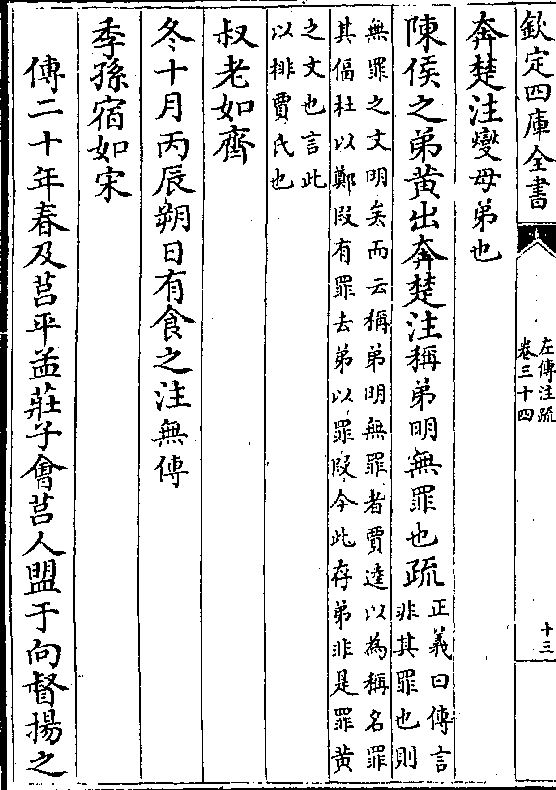 欽定四庫全書
左傳注疏
卷三十四
十三
奔楚注燮母弟也
陳侯之弟黄出奔楚注稱弟明無罪也疏
正義曰傳言
非其罪也則
無罪之文明矣而云稱弟明無罪者賈逵以為稱名罪
其偪杜以鄭段有罪去弟以罪段今此存弟非是罪黄
之文也言此
以排賈氏也
叔老如齊
冬十月丙辰朔日有食之注無傳
季孫宿如宋
傳二十年春及莒平孟莊子會莒人盟于向督揚之